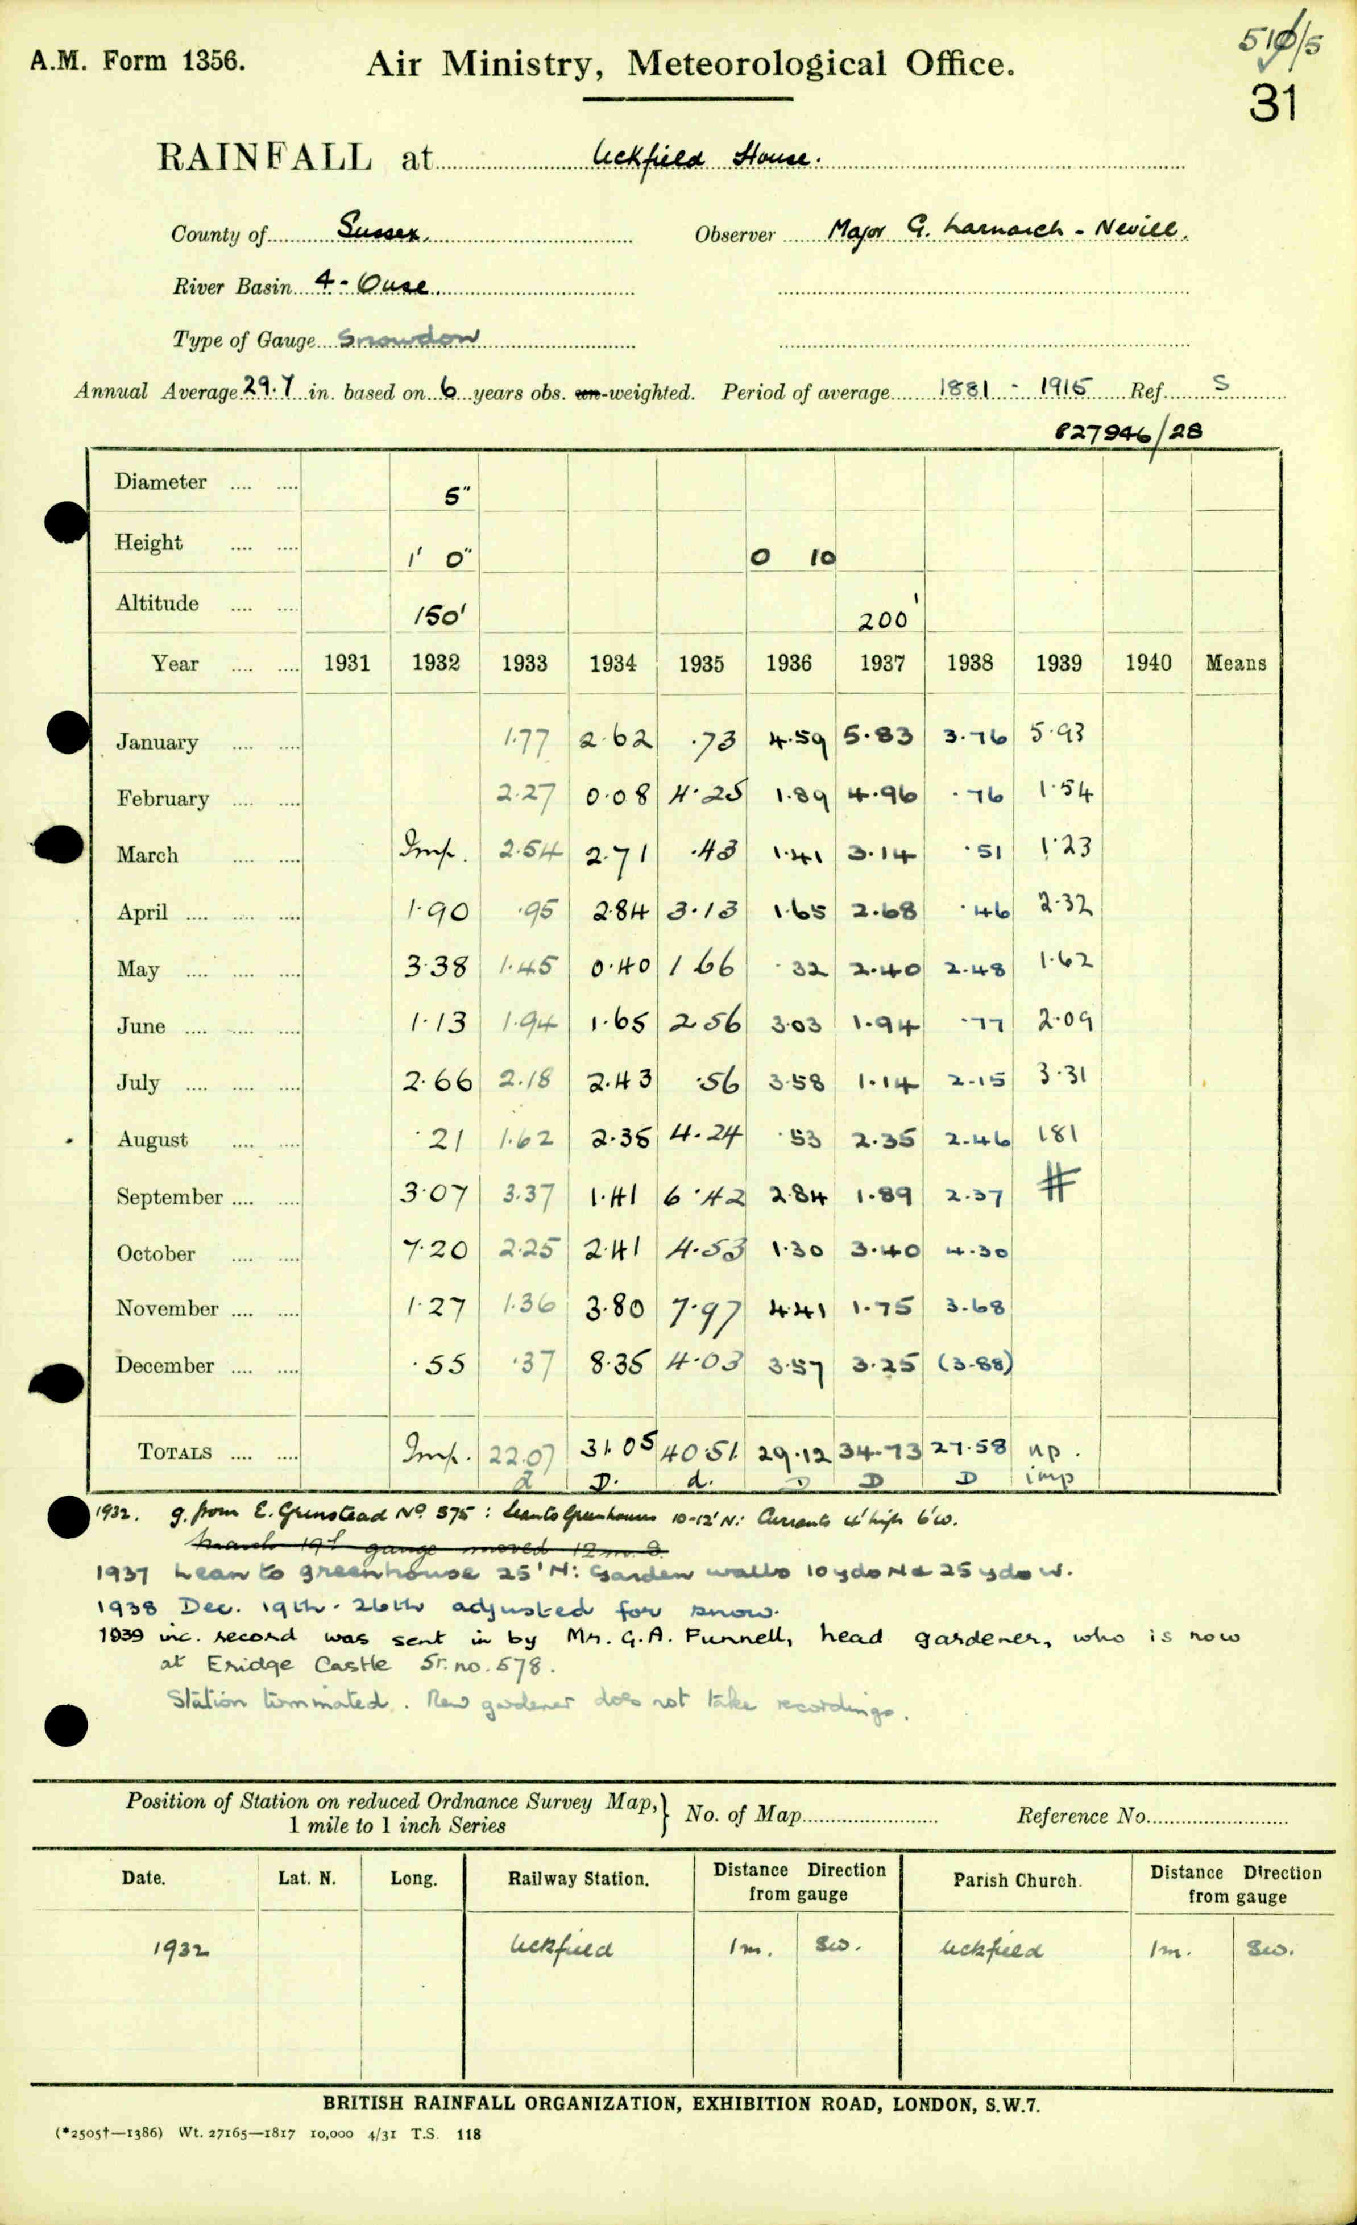 A.M. Form 1356.
Air Ministry, Meteorological Office.
31
RAINFALL at Uckfield House.
County of Sussex. Observer Major G. Larnarch - Nevill.
River Basin 4 - Ouse.
Type of Gauge Snowdon
Annual Average 29.7 in. based on 6 years obs. un-weighted. Period of average 1881 - 1915 Ref. S
827946/28
Diameter .... .... 5"
Height .... .... 1' 0" 0 10
Altitude .... .... 150' 200'
Year .... .... 1931 1932 1933 1934 1935 1936 1937 1938 1939 1940 Means
January .... .... 1.77 2.62 .73 4.59 5.83 3.76 5.93
February .... .... 2.27 0.08 4.25 1.89 4.96 .76 1.54
March .... .... Imp. 2.54 2.71 .43 1.41 3.14 .51 1.23
April .... .... .... 1.90 .95 2.84 3.13 1.65 2.68 .46 2.32
May .... .... .... 3.38 1.45 0.40 1 66 .32 2.40 2.48 1.62
June .... .... .... 1.13 1.94 1.65 2 56 3.03 1.94 .77 2.09
July .... .... .... 2.66 2.18 2.43 .56 3.58 1.14 2.15 3.31
August .... .... .21 1.62 2.35 4.24 .53 2.35 2.46 1 81
September .... .... 3.07 3.37 1.41 6.42 2.84 1.89 2.37 #
October .... .... 7.20 2.25 2.41 4.53 1.30 3.40 4.30
November .... .... 1.27 1.36 3.80 7.97 4.41 1.75 3.68
December .... .... .55 .37 8.35 4.03 3.57 3.25 (3.88)
TOTALS .... .... Imp. 22.07 31.05 40.51 29.12 34.73 27.58 np.
d D. d. D D D imp
1932. g. from E. Grinstead No. 575 : Leanto Greenhouses 10-12' N: Currants 4' high 6' W.
March 19th gauge moved 12
1937 Lean to greenhouse 25' N: Garden walls 10 yds N & 25 yds W.
1938 Dec. 19th - 26th adjusted for snow.
1939 inc. record was sent in by Mr. G.A. Funnell, head gardener, who is now
at Eridge Castle St. no. 578.
Station terminated. New gardener does not take recordings.
Position of Station on reduced Ordnance Survey Map,} No. of Map Reference No.
1 mile to 1 inch Series
Date. Lat. N. Long. Railway Station. Distance Direction from gauge Parish Church. Distance Direction from gauge
1932 Uckfield 1 m. SW. Uckfield 1 m. SW.
BRITISH RAINFALL ORGANIZATION, EXHIBITION ROAD, LONDON, S.W.7.
(*2505†—1386) Wt. 27165—1817 10,000 4/31 T.S. 118